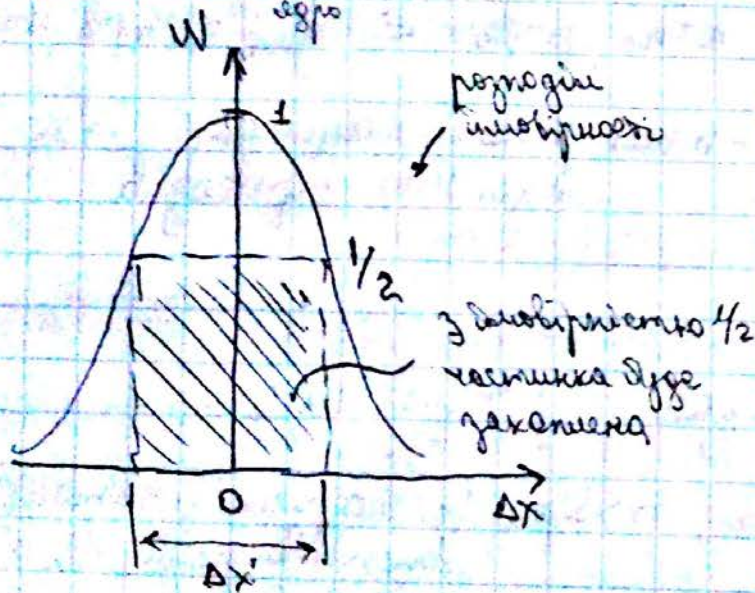 ядро
W
1
розподіл
ймовірності
1/2
з ймовірністю 1/2
частинка буде
захоплена
0
Δx
Δx'